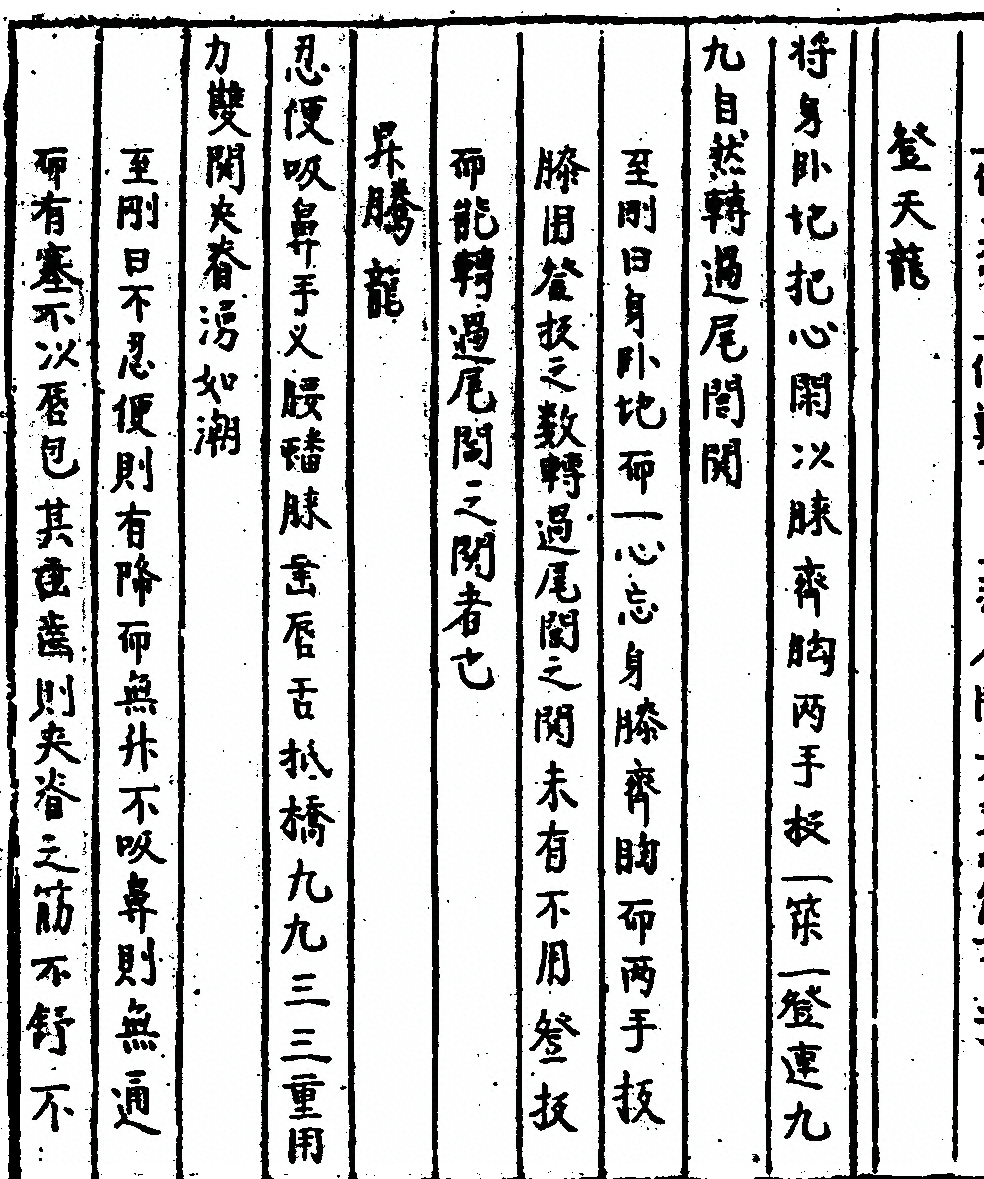 登天龍
将身卧地把心閑以膝齊胸两手扳一築一登連九
九自然轉過尾閭関
至剛曰身卧地而一心忘身膝齊胸而两手扳
膝用登扳之数轉過尾閭之関未有不用登扳
而能轉過尾閭之関者也
昇騰龍
忍便吸鼻手义腰蟠膝齒唇舌抵橋九九三三重用
力雙関夾脊湧如潮
至剛曰不忍便則有降而無升不吸鼻則無通
而有塞不以唇包其齒則夾脊之筋不舒不